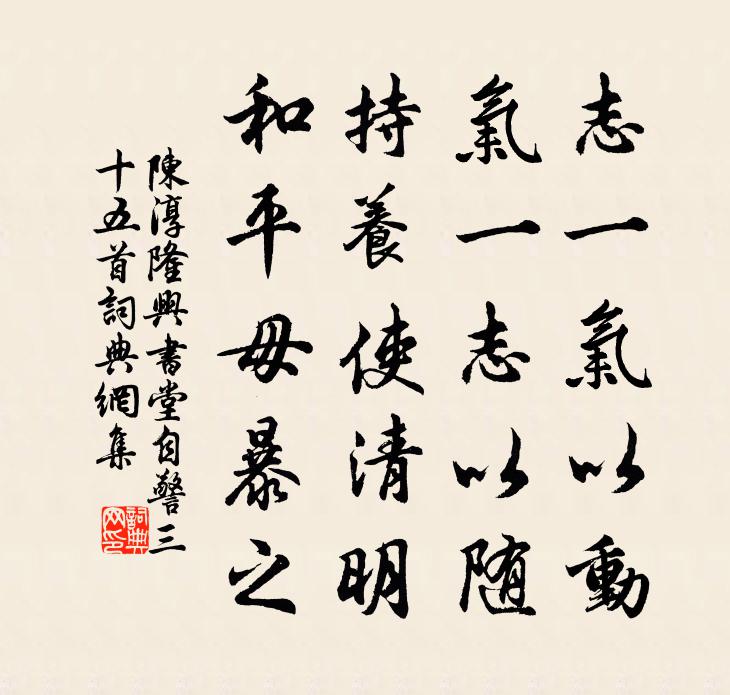 志一氣以動
氣一志以随
持養使清明
和平毋暴之
陳淳隆興書堂自警三
十五首詞典網集
詞典
网印